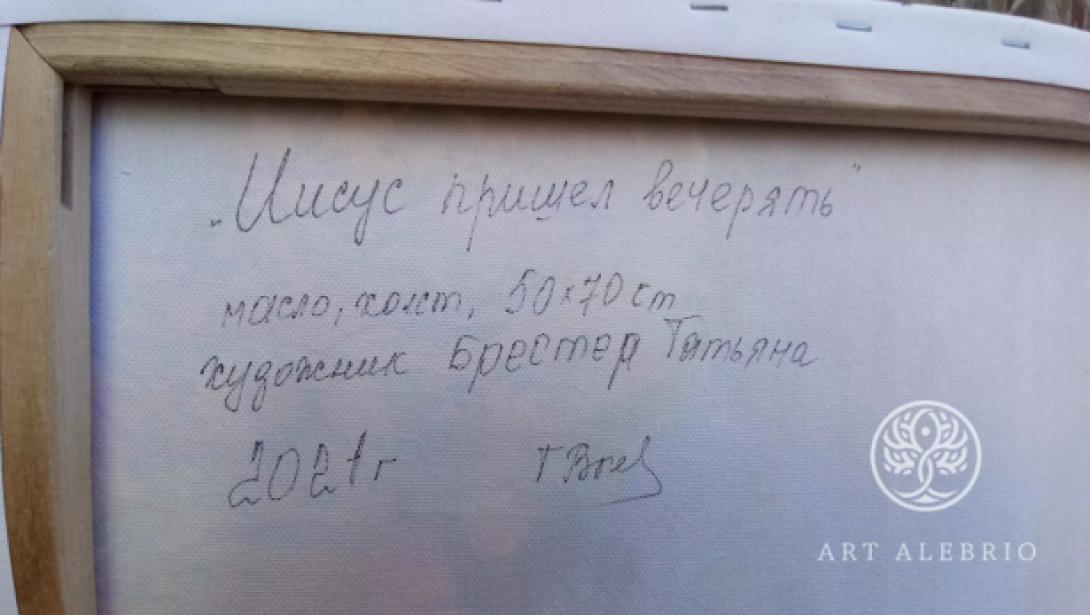 „Иисус пришел вечерять"
масло, холст, 50х70 ст
художник Брестер Татьяна
2021 г
ART ALEBRIO